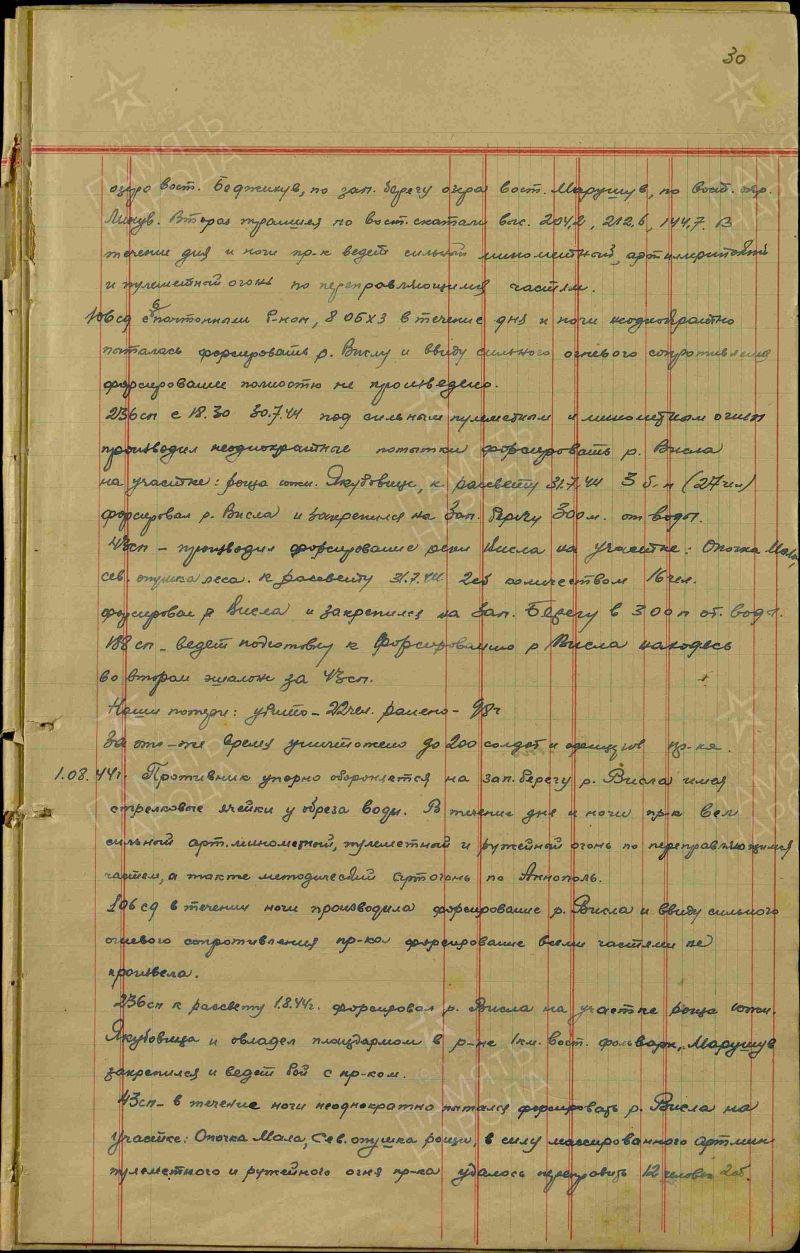 30
озеро вост. Беджихув, по зап. берегу озера вост. Марушув, по вост. окр.
Линув. Вторая траншея по вост. скатам выс. 204,2, 212,6, 144,7. В
течение дня и ночи пр-к ведет сильный минометный, артиллерийский
и пулеметный огонь по переправляющимся частям.
106сд с 6 понтонным б-ном, 8 ОБХЗ в течение дня и ночи неоднократно
пыталась форсировать р. Вислу и ввиду сильного огневого сопротивления
форсирование полностью не произведено.
236сп с 18.30 30.7.44 под сильным пулеметным и минометным огнем
производил неоднократные попытки форсировать р. Висла
на участке: роща южн. Якубовице, к рассвету 31.7.44 3 б-н (27чел)
форсировал р. Висла и закрепился на Зап. берегу 300м. от воды.
43сп – производил форсирование реки Висла на участке: Опочка Мала,
сев. опушка леса. к рассвету 31.7.44 2сб количеством 16чел.
форсировал р Висла и закрепился на Зап. Берегу в 300м от воды.
188сп – ведет подготовку к форсированию р Висла находясь
во втором эшалоне за 43сп.
Наши потери: убито – 22чел. ранено – 98ч
За это-же время уничтожено до 200 солдат и офицеров пр-ка.
1.08.44г. Противник упорно обороняется на зап. берегу р. Висла имея
стрелковые ячейки у обреза воды. В течение дня и ночи пр-к вел
сильный арт. минометный, пулеметный и ружейный огонь по переправляющимся
частям, а также методический артогонь по Аннополь.
106сд в течении ночи производила форсирование р. Висла и ввиду сильного
огневого сопротивления пр-ка форсирование всеми частями не
произвела.
236сп к рассвету 1.8.44г. форсировал р. Висла на участке роща южн.
Якубовица и овладел плацдармом в р-не 1км. вост. фольварк, Марушув
закрепился и ведет бой с пр-ком.
43сп – в течение ночи неоднократно пытался форсировать р. Висла на
участке: Опочка Мала, Сев. опушка рощи, в силу массированного артмин
пулеметного и ружейного огня пр-ка удалось переправить 12 человек 2сб.
ПАМЯТЬ
НАРОДА